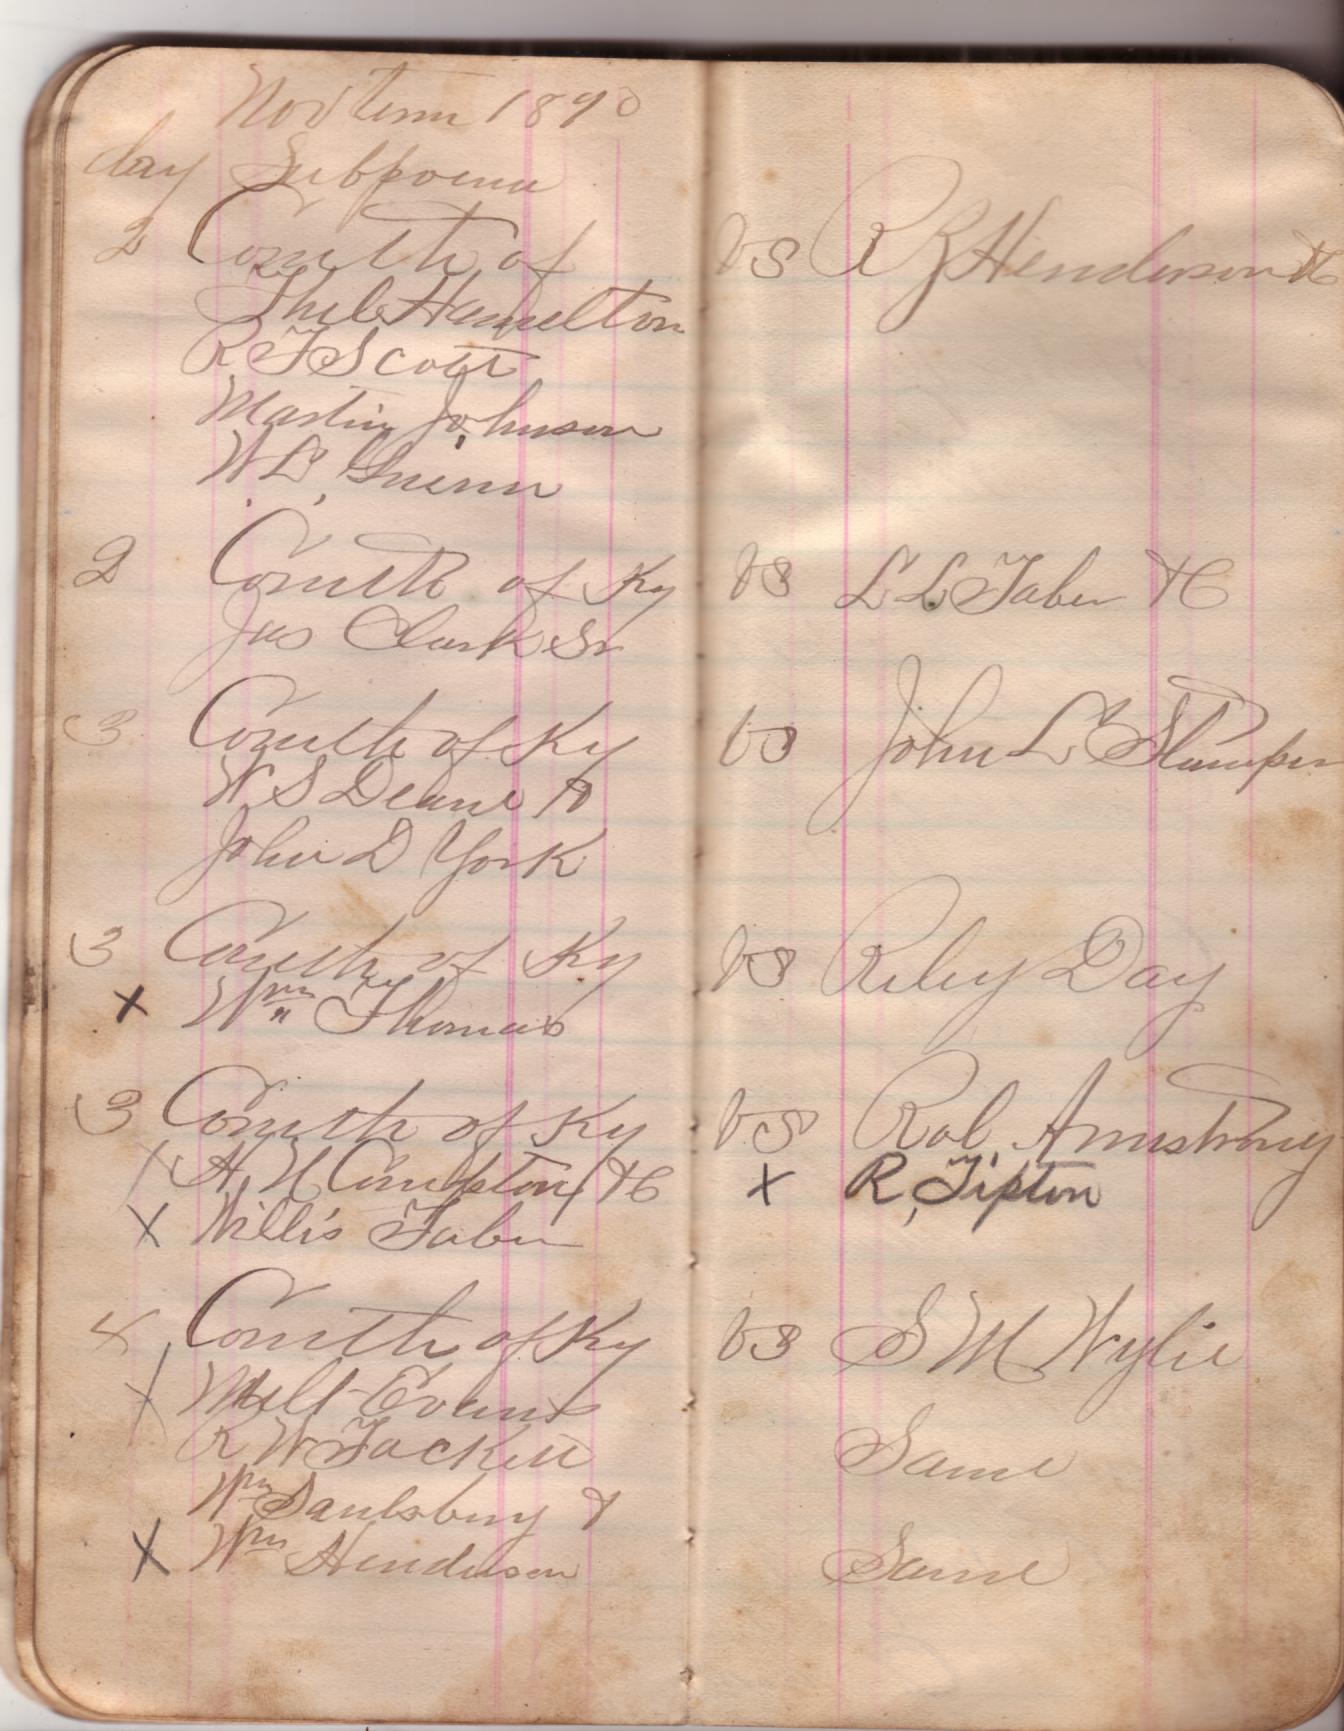 Nov term 1890
day Subpoena
2 Comlth of vs R Z Henderson &C
Phil Hamilton
R F Scott
Martin Johnson
W L Guinn
2 Comlth of Ky vs L L Faber &C
Jas Clark Sr
3 Comlth of Ky vs John L Stamper
W S Deane &
John D York
3 Comlth of Ky vs Riley Day
x Wm Thomas
3 Comlth of Ky vs Rob Armstrong
X A. N Compton &C x R, Tipton
X Willis Faber
4 Comlth of Ky vs S M Wylie
X Milt Evans
R W Tackett Same
Wm Saulsbury &
X Wm Henderson Same